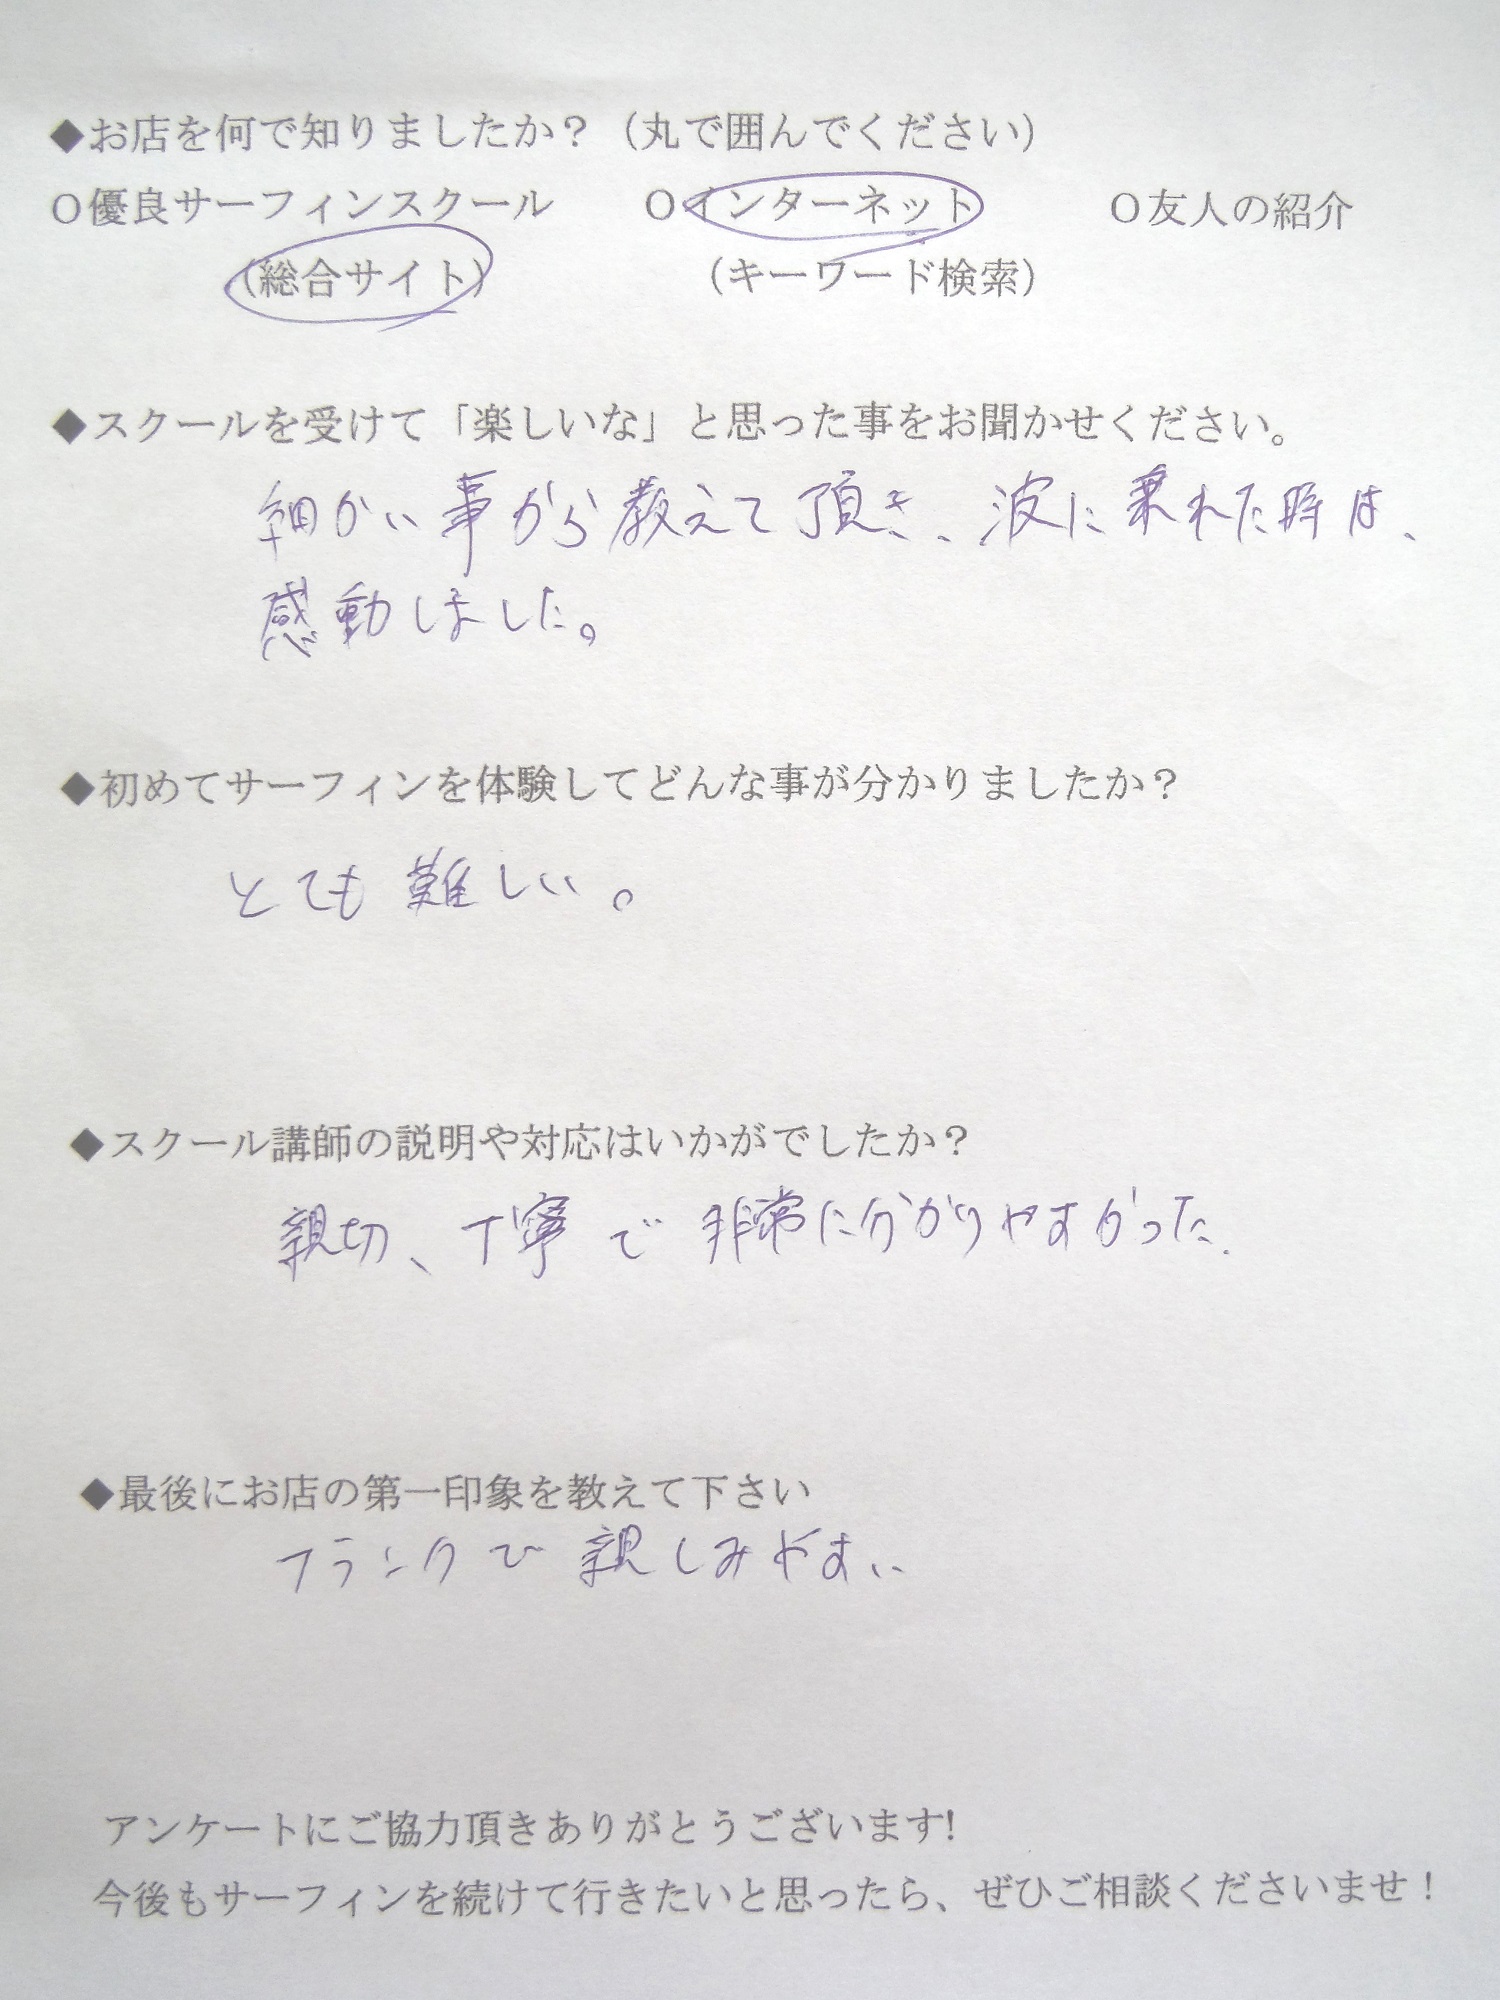 ◆お店を何で知りましたか？（丸で囲んでください）
○優良サーフィンスクール ○インターネット ○友人の紹介
（総合サイト） （キーワード検索）
◆スクールを受けて「楽しいな」と思った事をお聞かせください。
細かい事から教えて頂き、波に乗れた時は、
感動しました。
◆初めてサーフィンを体験してどんな事が分かりましたか？
とても難しい。
◆スクール講師の説明や対応はいかがでしたか？
親切、丁寧で非常に分かりやすかった.
◆最後にお店の第一印象を教えて下さい
フランクで親しみやすい
アンケートにご協力頂きありがとうございます!
今後もサーフィンを続けて行きたいと思ったら、ぜひご相談くださいませ！